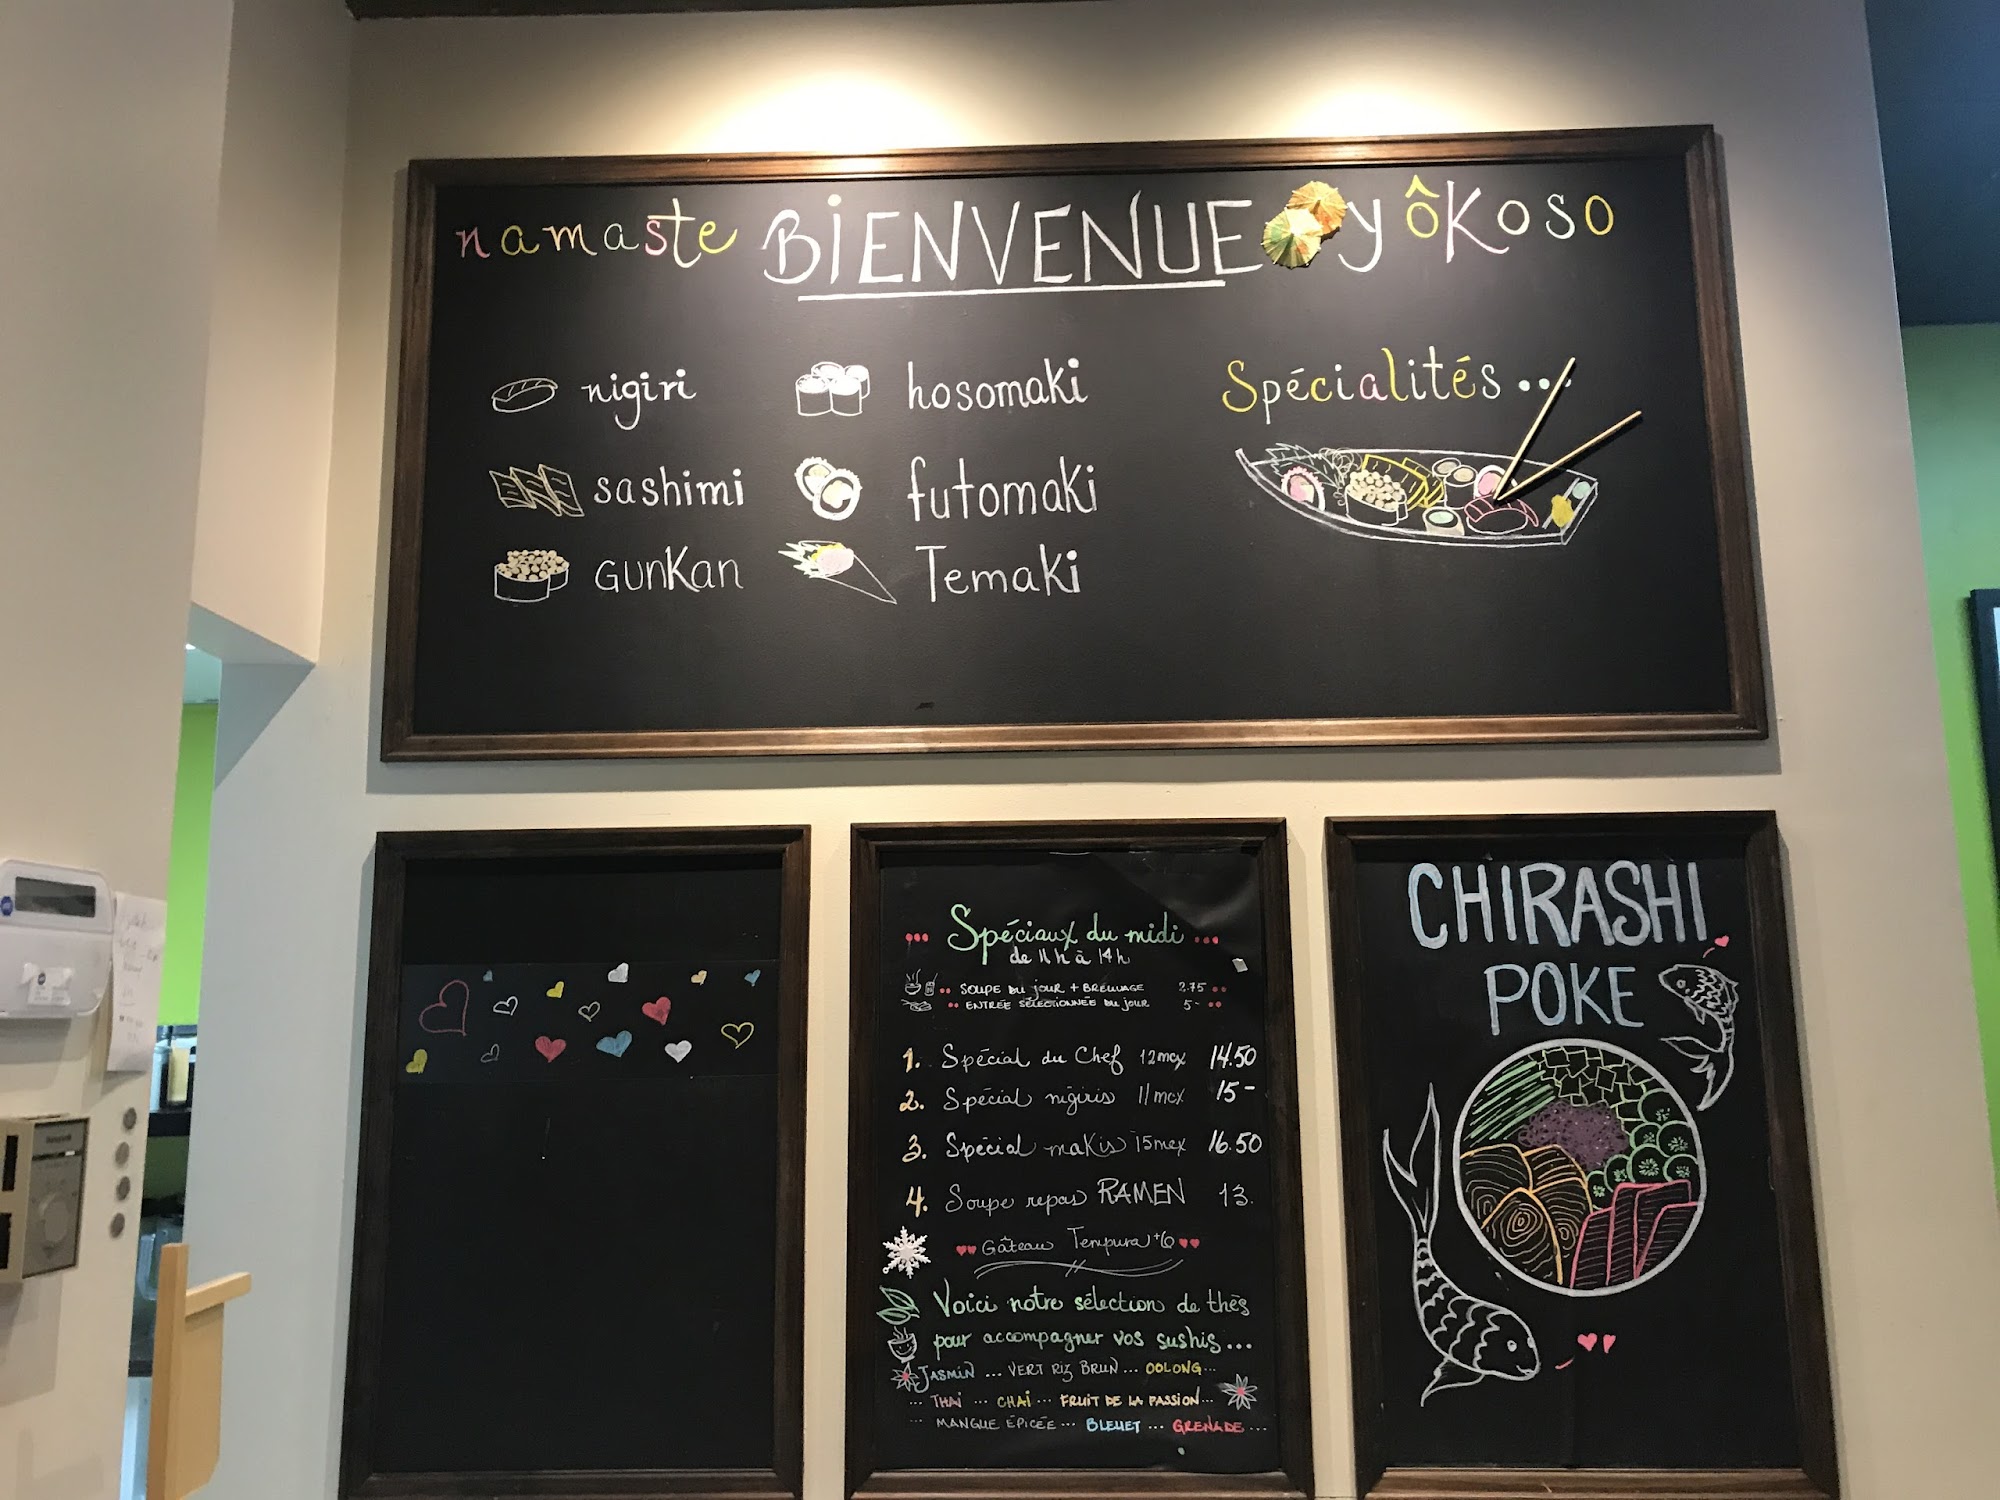 namaste BIENVENUE yôkoso
nigiri
sashimi
GUNKan
hosomaki
futomaki
Temaki
Spécialités...
... Spéciaux du midi ...
de 11h à 14h
SOUPE DU JOUR + BREUVAGE 2.75
ENTRÉE SÉLECTIONNÉE DU JOUR 5-
1. Spécial du Chef 12mcx 14.50
2. Spécial nigiris 11mcx 15-
3. Spécial makis 15mcx 16.50
4. Soupe repas RAMEN 13.
Gâteau Tempura +6
Voici notre sélection de thés
pour accompagner vos sushis...
JASMIN ... VERT RIZ BRUN ... OOLONG...
... THAI ... CHAÏ ... FRUIT DE LA PASSION...
... MANGUE ÉPICÉE ... BLEUET ... GRENADE...
CHIRASHI
POKE